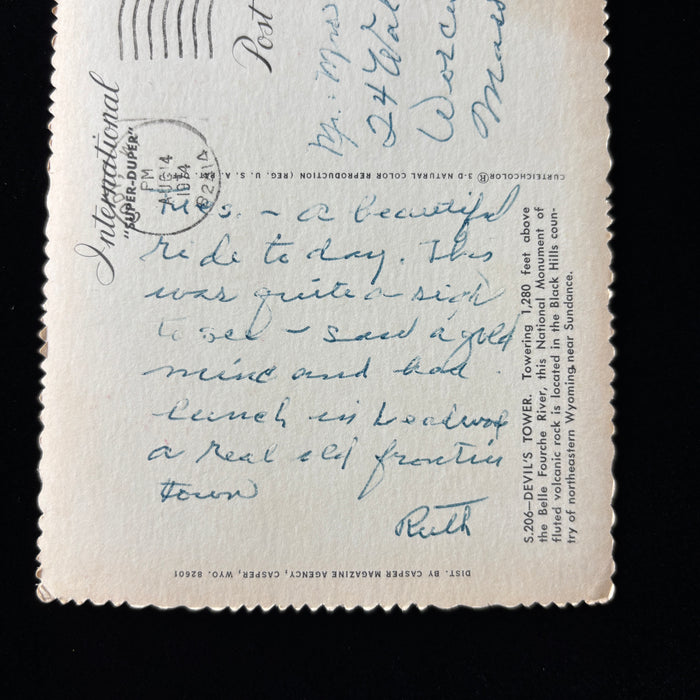 International
"SUPER-DUPER"
Post
PM
AUG 14
1974
82414
Mr. Mrs
24 Wal
Worce
Mass
CURTEICHCOLOR® 3-D NATURAL COLOR REPRODUCTION (REG. U. S. A.
Mes. - a beautiful
ride today. This
was quite a sight
to see - saw a gold
mine and had
lunch in Leadwood
a real old frontier
town
Ruth
S.206—DEVIL'S TOWER. Towering 1,280 feet above
the Belle Fourche River, this National Monument of
fluted volcanic rock is located in the Black Hills coun-
try of northeastern Wyoming, near Sundance.
DIST. BY CASPER MAGAZINE AGENCY, CASPER, WYO. 82601